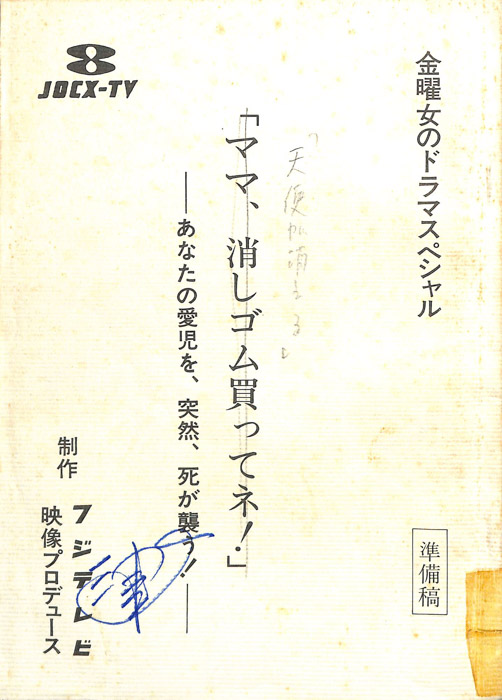 金曜女のドラマスペシャル
準備稿
「天使が消える」
「ママ、消しゴム買ってネ！」
――あなたの愛児を、突然、死が襲う！――
JOCX-TV
制作
フジテレビ
映像プロデュース